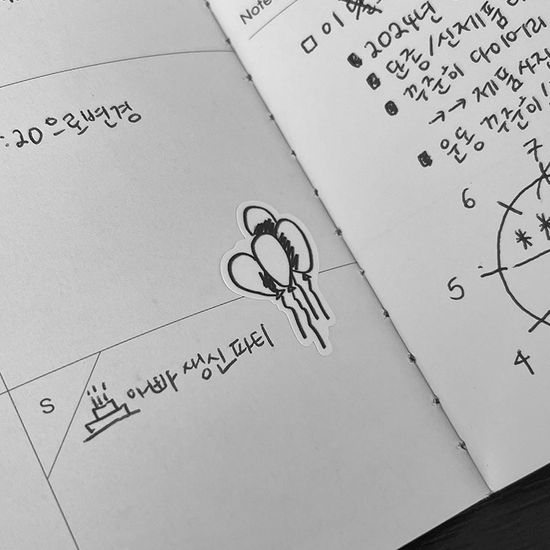 :20 으로변경
S
아빠 생신파티
Note
□ 이
■ 2024년
■ 단종/신제품
■ 꾸준히 다이어리
→→ 제품사진
■ 운동 꾸준히
7
6
5
4